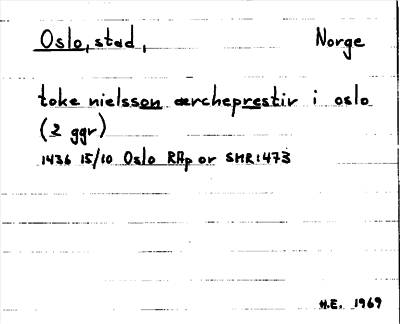 Oslo, stad, Norge
toke nielsson ærcheprestir i oslo
(2 ggr)
1436 15/10 Oslo RAp or SMR:473
H.E. 1969